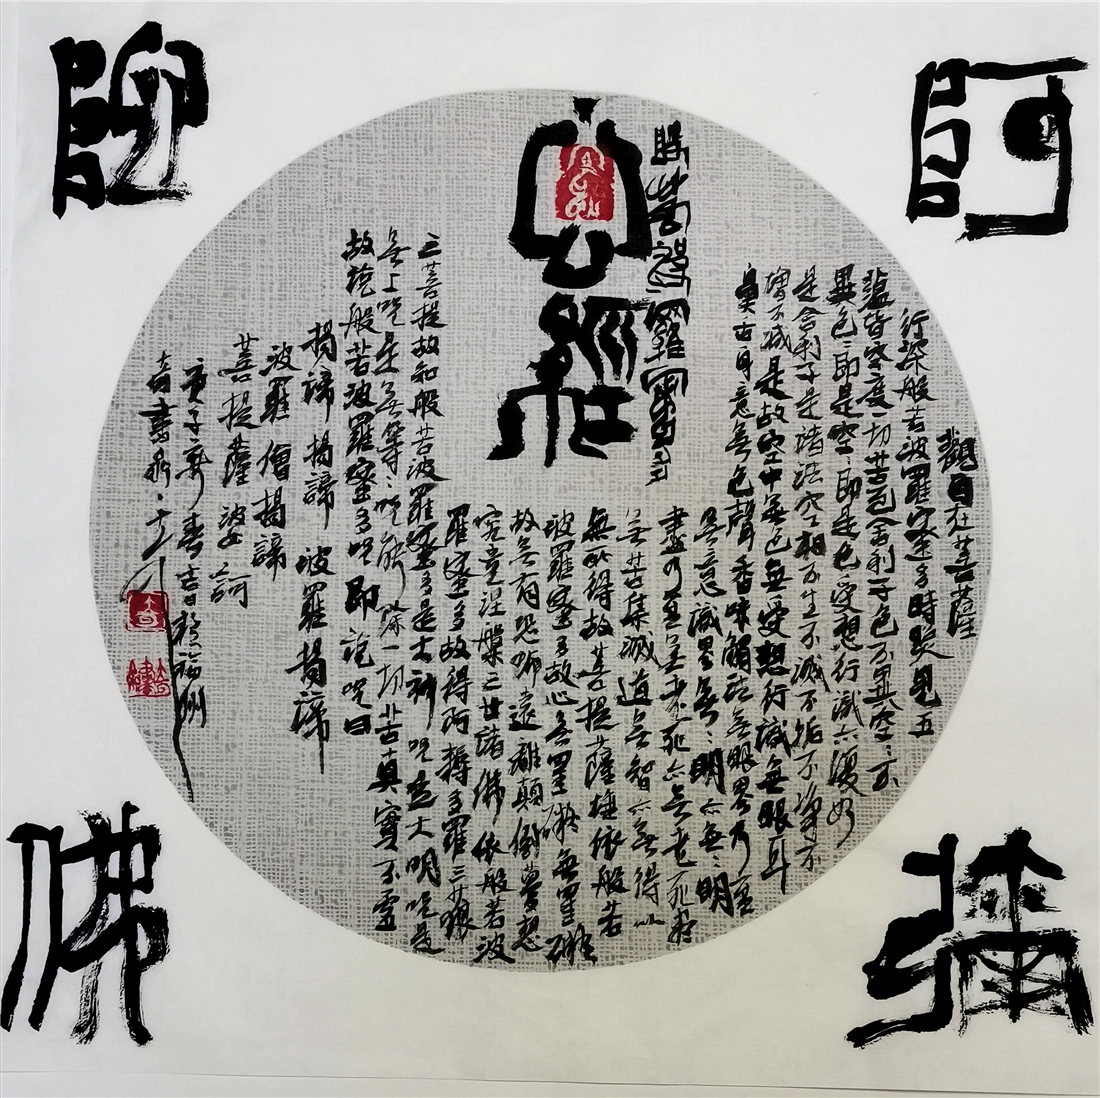 阿
彌
陀
佛
般若波羅蜜多
心經
觀自在菩薩
行深般若波羅蜜多時照見五
蘊皆空度一切苦厄舍利子色不異空:不
異色:即是空:即是色受想行識亦復如
是舍利子是諸法空相不生不滅不垢不淨不
增不減是故空中無色無受想行識無眼耳
鼻舌身意無色聲香味觸法無眼界乃至
無意識界無:明亦無:明
盡乃至無老死亦無老死盡
無苦集滅道無智亦無得以
無所得故菩提薩埵依般若
波羅蜜多故心無罣礙無罣礙
故無有恐怖遠離顛倒夢想
究竟涅槃三世諸佛依般若波
羅蜜多故得阿耨多羅三藐
三菩提故知般若波羅蜜多是大神咒是大明咒是
無上咒是無等:咒能除一切苦真實不虛
故說般若波羅蜜多咒即說咒曰
揭諦揭諦波羅揭諦
波羅僧揭諦
菩提薩婆訶
庚子年春吉日於福州